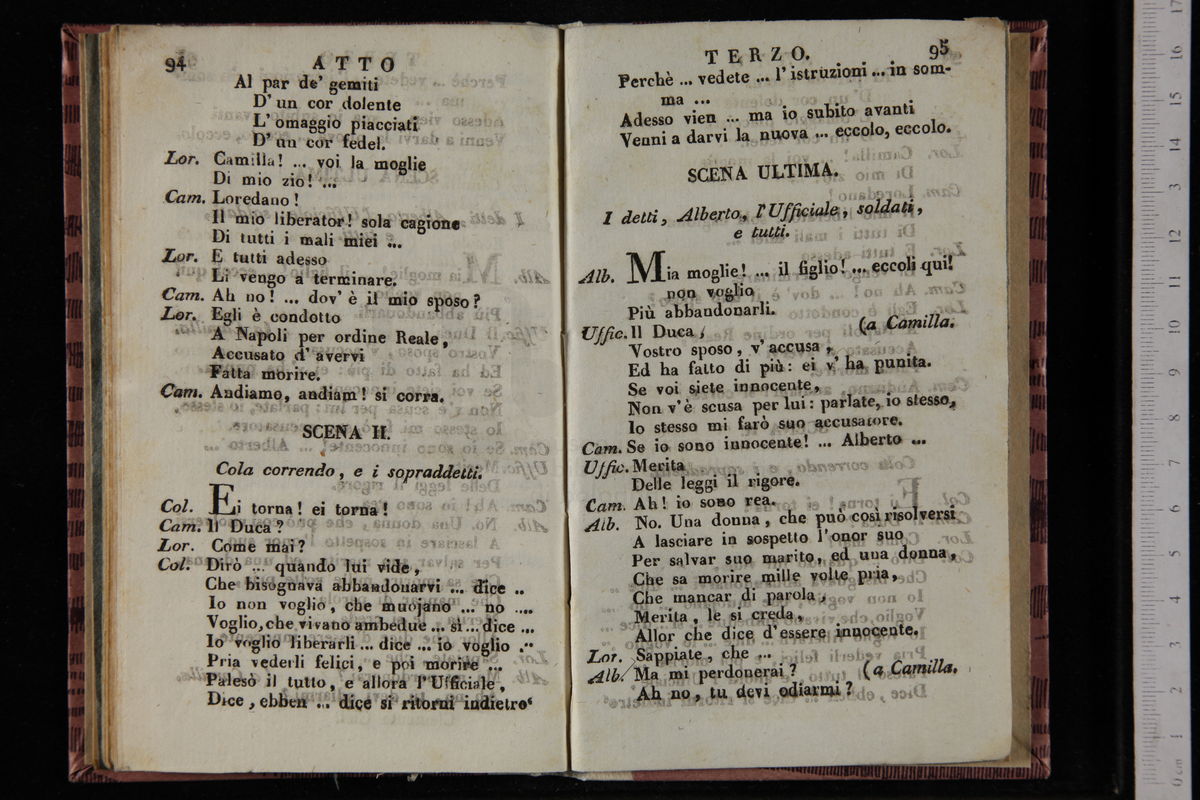 94 ATTO
Al par de' gemiti
D' un cor dolente
L' omaggio piacciati
D' un cor fedel.
Lor. Camilla! ... voi la moglie
Di mio zio! ...
Cam. Loredano!
Il mio liberator! sola cagione
Di tutti i mali miei ...
Lor. E tutti adesso
Li vengo a terminare.
Cam. Ah no! ... dov' è il mio sposo?
Lor. Egli è condotto
A Napoli per ordine Reale,
Accusato d' avervi
Fatta morire.
Cam. Andiamo, andiam! si corra.
SCENA II.
Cola correndo, e i sopraddetti.
Col. Ei torna! ei torna!
Cam. Il Duca?
Lor. Come mai?
Col. Dirò ... quando lui vide,
Che bisognava abbandonarvi ... dice ..
Io non voglio, che muojano ... no ....
Voglio, che vivano ambedue ... sì ... dice ...
Io voglio liberarli ... dice ... io voglio ...
Pria vederli felici, e poi morire ...
Palesò il tutto, e allora l'Ufficiale,
Dice, ebben ... dice si ritorni indietro
TERZO. 95
Perchè ... vedete ... l' istruzioni ... in som-
ma ...
Adesso vien ... ma io subito avanti
Venni a darvi la nuova ... eccolo, eccolo.
SCENA ULTIMA.
I detti, Alberto, l'Ufficiale, soldati,
e tutti.
Alb. Mia moglie! ... il figlio! ... eccoli qui!
non voglio
Più abbandonarli.
Uffic. Il Duca, (a Camilla.
Vostro sposo, v' accusa,
Ed ha fatto di più: ei v' ha punita.
Se voi siete innocente,
Non v'è scusa per lui: parlate, io stesso,
Io stesso mi farò suo accusatore.
Cam. Se io sono innocente! ... Alberto ...
Uffic. Merita
Delle leggi il rigore.
Cam. Ah! io sono rea.
Alb. No. Una donna, che può così risolversi
A lasciare in sospetto l'onor suo
Per salvar suo marito, ed una donna,
Che sa morire mille volte pria,
Che mancar di parola,
Merita, le si creda,
Allor che dice d'essere innocente.
Lor. Sappiate, che ...
Alb. Ma mi perdonerai? (a Camilla.
Ah no, tu devi odiarmi?